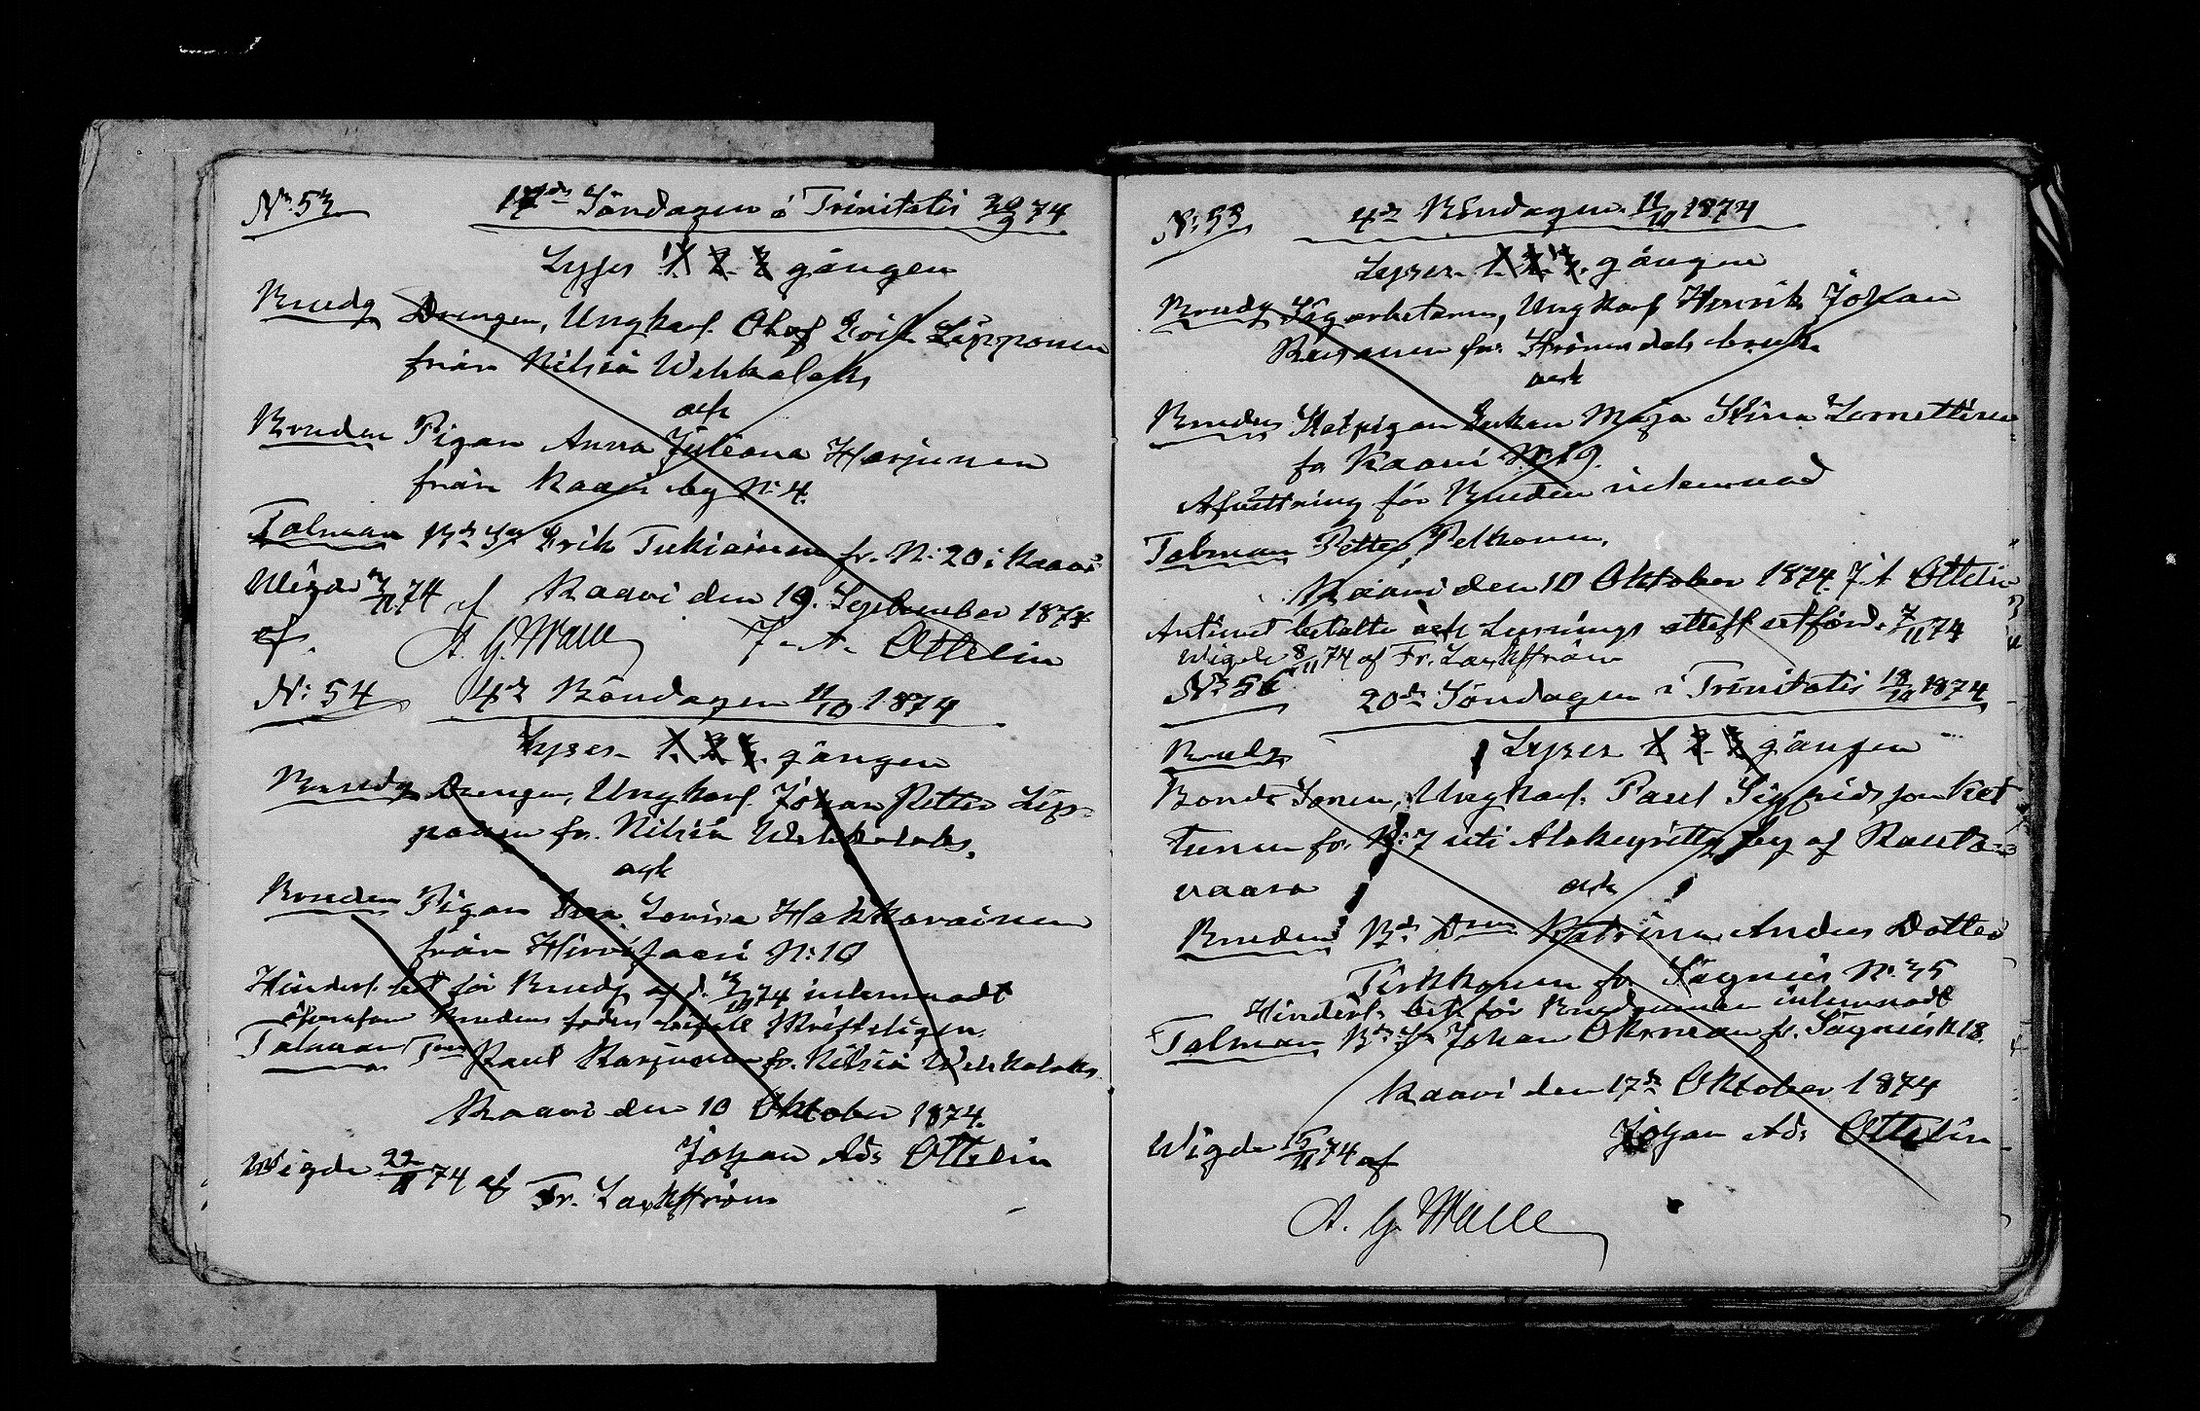 N:53 17de Söndagen ö Trinitatis 20/9 74
Lyses 1. 2. 3. gången
Brudg Drengen, Ungkarl. Olof Erik Lipponen
från Nilsiä Wehkalaks
och
Bruden Pigan Anna Juliana Harjunen
från Kaavi by N:4.
Talman Bd Sn Erik Tukiainen fr. N:20 i Kaavi
Kaavi den 19. September 1874
Wigde /11 74 af A. G. Walle J. A. Ottelin
N:54 4de Böndagen 11/10 1874
Lyses 1. 2. 3. gången
Brudg Drengen, Ungkarl. Johan Petter Lip-
ponen fr. Nilsiä Wehkalaks,
och
Bruden Pigan Lovisa Hakkarainen
från Hirvisaari N:10
Hindersl. bet för Brudg af d. /10 74 inlemnadt
Bruden skrifteligen
Talman Paul Karjunen fr. Nilsiä Wehkalaks
Kaavi den 10 Oktober 1874.
Johan Ad. Ottelin
Wigde 22/11 74 af Fr. Lackström
N:55 4de Böndagen. 11/10 1874
Lyses 1. 2. 3. gången
Brudg Sågarbetaren, Ungkarl Henrik Johan
Räsänen fr. Strömsdals bruk
och
Bruden Enkan Maja Stina Lomettinen
fr Kaavi N:19.
Afvittring för Bruden inlemnad
Talman Petter Pelkonen,
Kaavi den 10 Oktober 1874. J A Ottelin
Antimet betalte och Lysnings attest utförd. 7/11 74
Wigde 8/11 74 af Fr. Lackström
N:56 20de Söndagen i Trinitatis 18/10 1874
Brudg Lyses 1. 2. 3. gången
Bonde Sonen, Ungkarl. Paul Sigfridsson Ket
tunen fr. N:7 uti Alakeyritty by af Rauta-
vaara och
Bruden Bd Dtrn Katrina Anders Dotter
Tirkkonen fr Säyneis N:35
Hindersl. bet. för Brudgummen inlemnadt
Talman Bd Sn Johan Okrman fr. Säyneis N 18.
Kaavi den 17de Oktober 1874
Johan Ad. Ottelin
Wigde 15/11 74 af
A. G. Walle